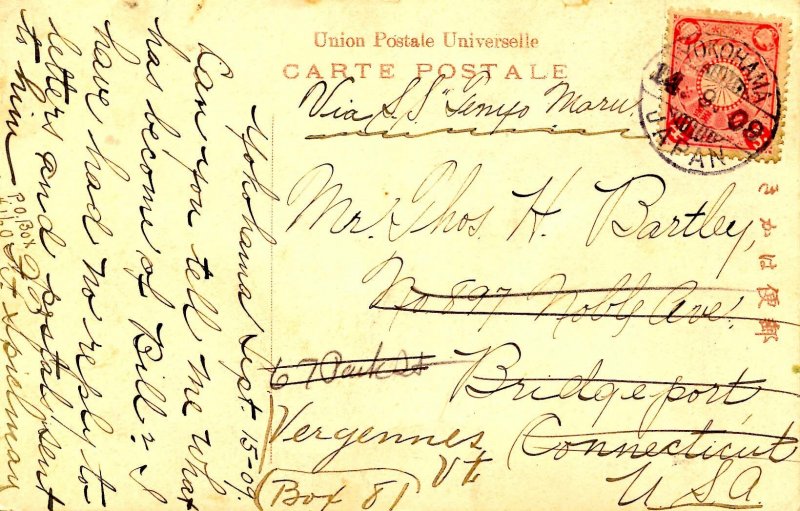 Union Postale Universelle
CARTE POSTALE
Via S.S. "Tenyo Maru"
YOKOHAMA
14. 9. 09
JAPAN
きかは便郵
Mr. Thos. H. Bartley,
No 897 Noble Ave.
67 Park St
Bridgeport
Connecticut
U.S.A.
Vergennes
Vt
(Box 81)
Yokohama Sept. 15-09.
Can you tell me what
has become of Bill? I
have had no reply to
letters and postal sent
to him
P.O. Box
Spielman